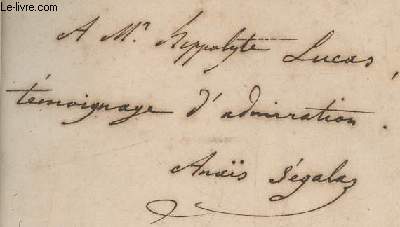 Le-livre.com
A Mr. Hippolyte Lucas,
témoignage d'admiration.
Anaïs Ségalas